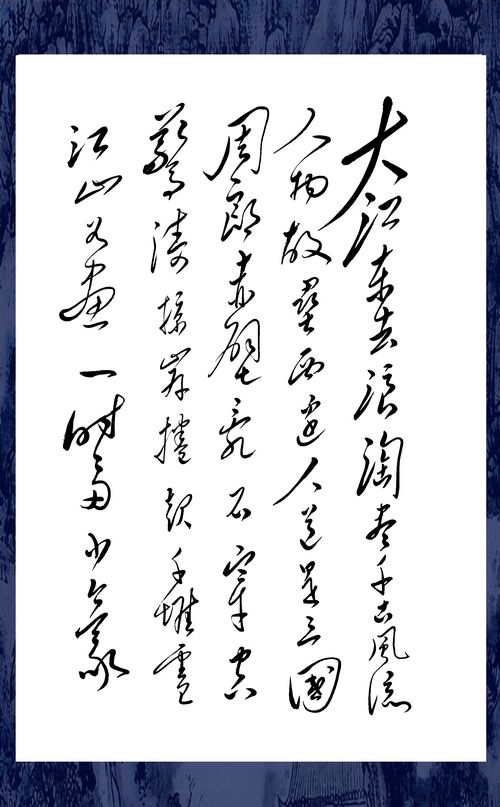 大江东去浪淘尽千古風流
人物故壘西邊人道是三國
周郎赤壁乱石穿空
驚涛掠岸捲起千堆雪
江山如畫一時多少豪